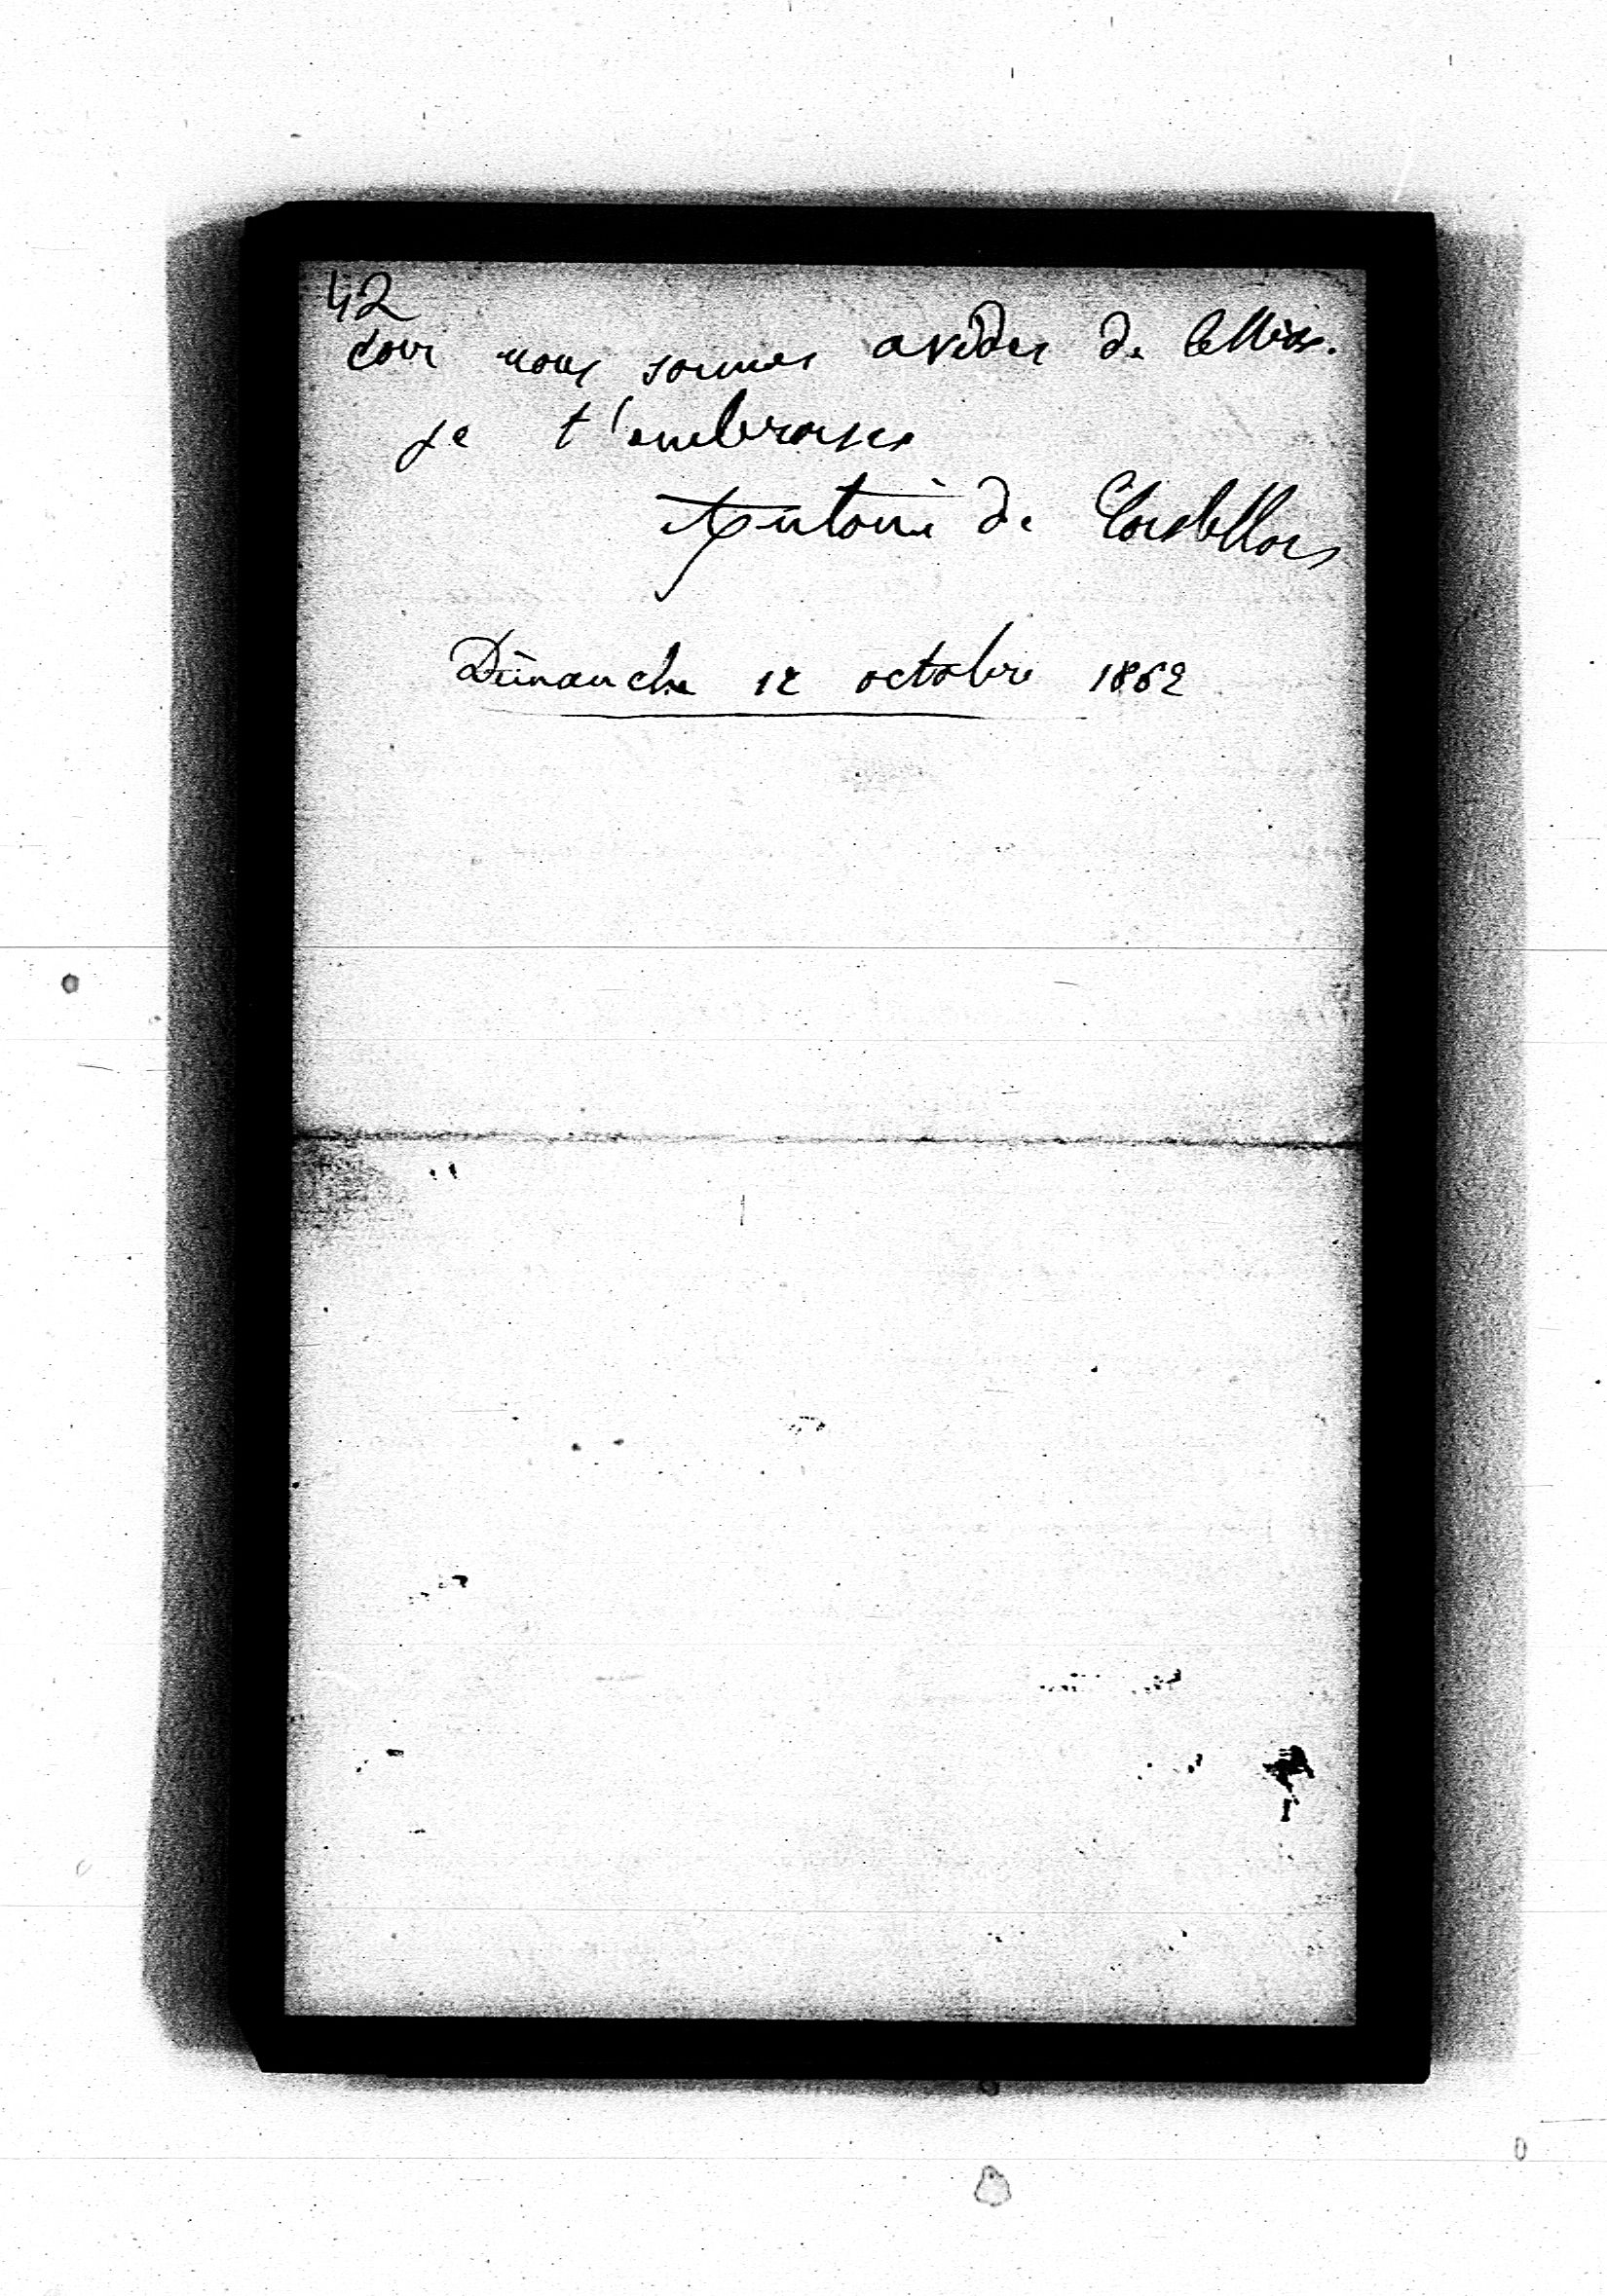 42
tous nous sommes avides de lettres.
je t'embrasse
Antoine de
Dimanche 12 octobre 1862